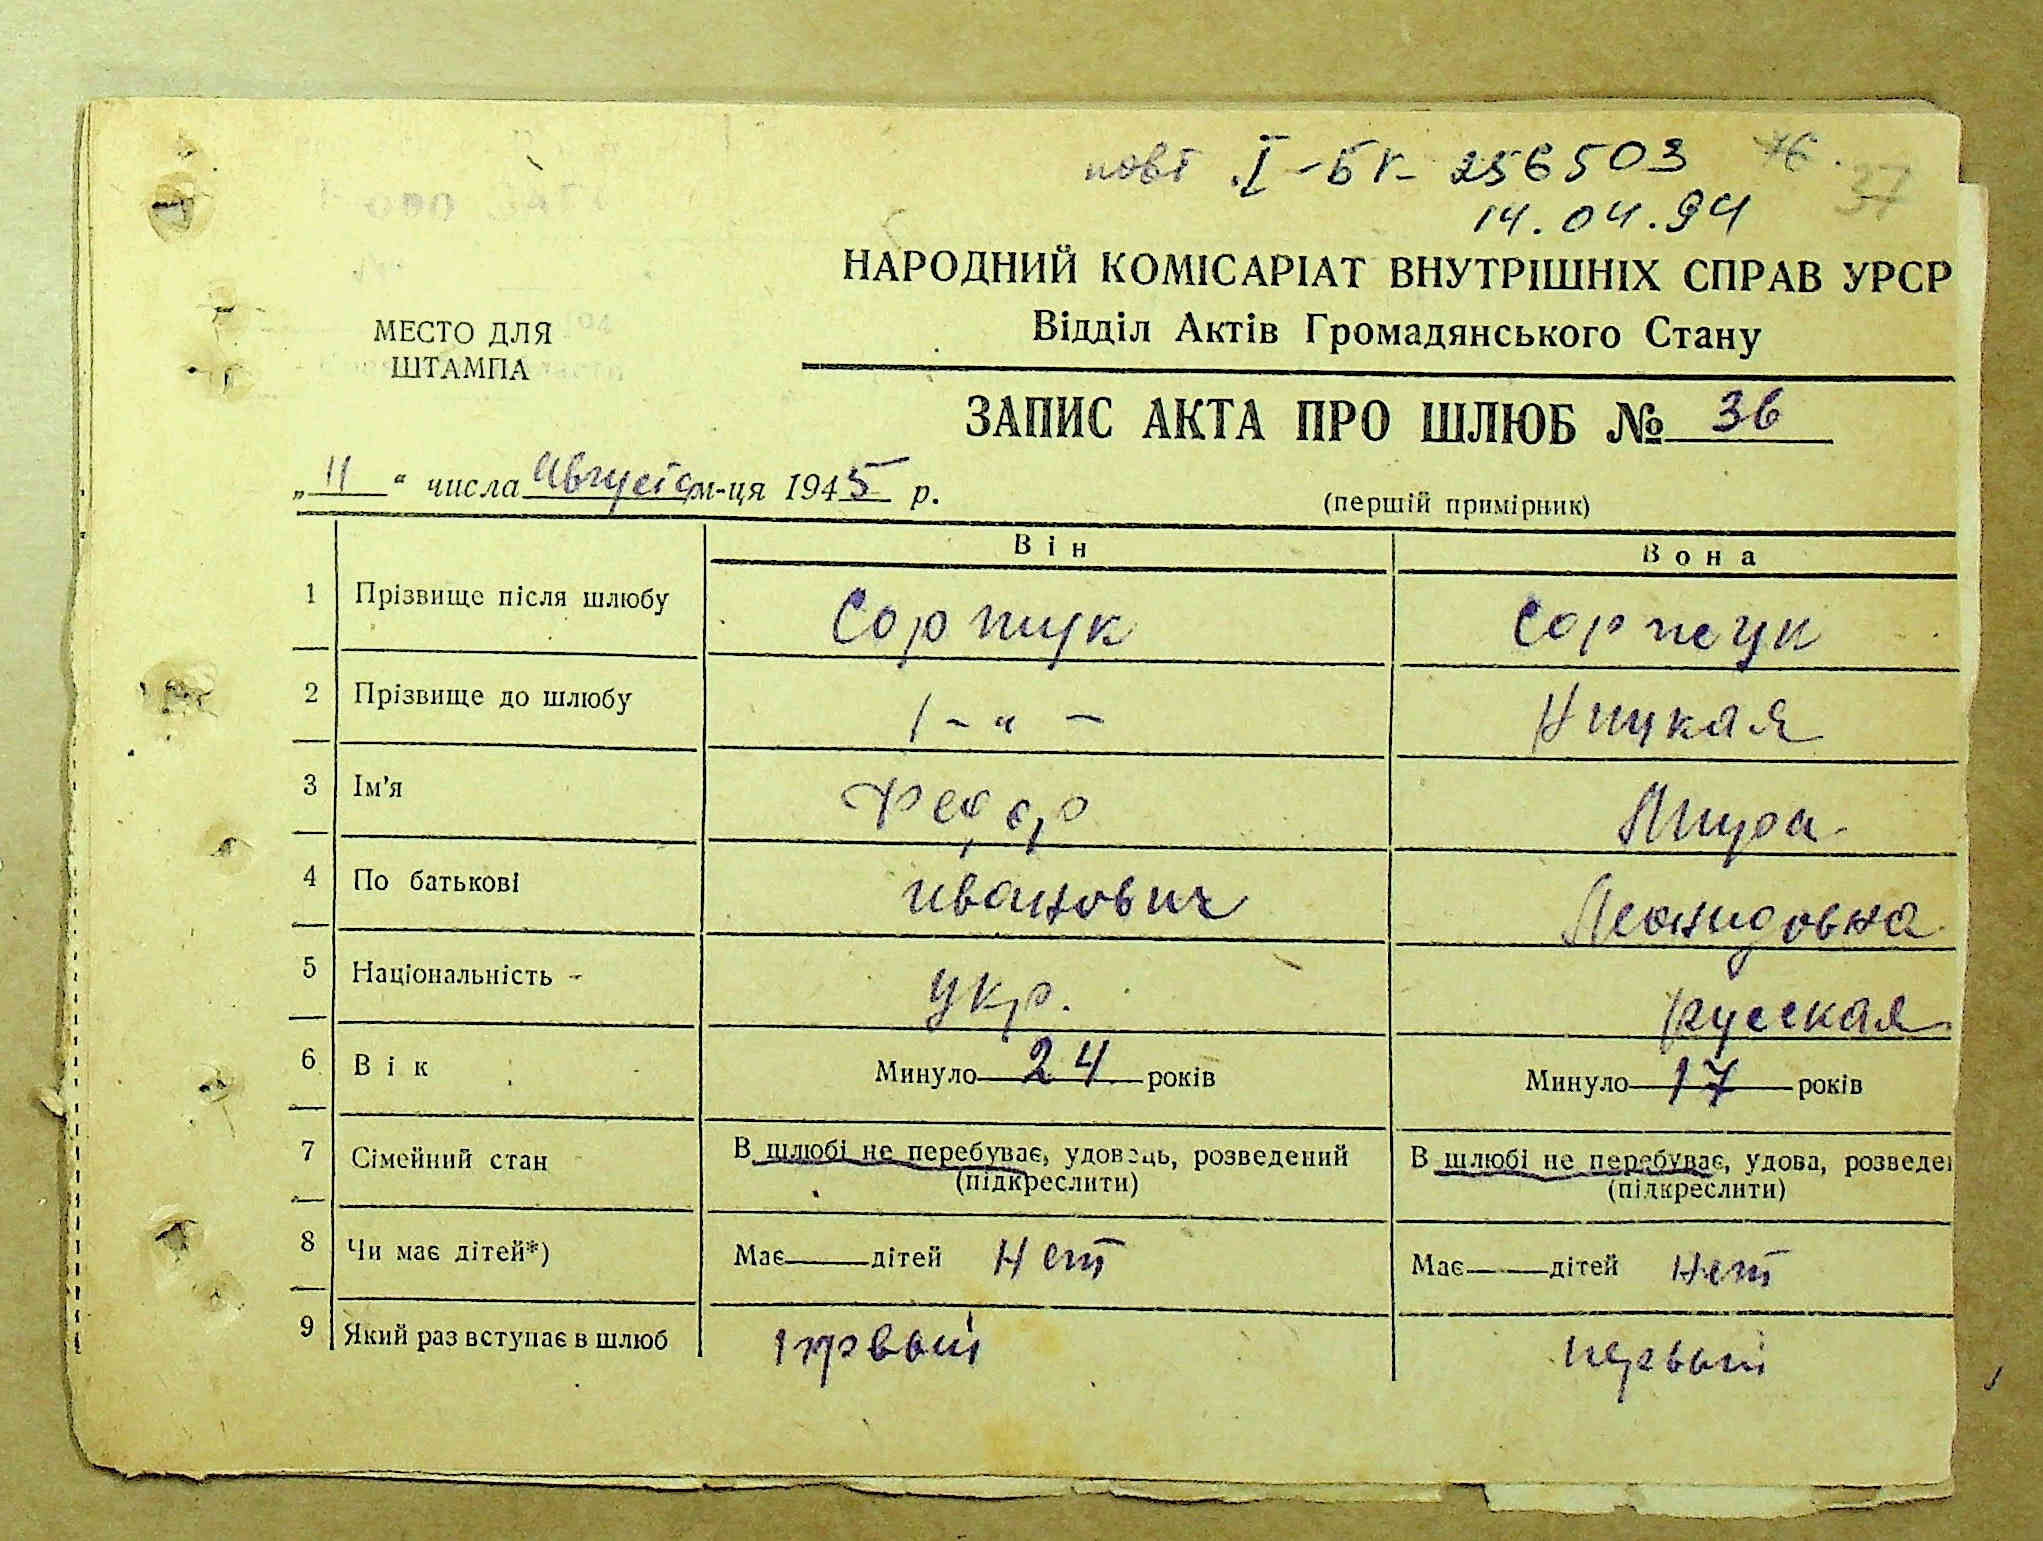 повт I-БК-256503 76.
37
14.04.94
НАРОДНИЙ КОМІСАРІАТ ВНУТРІШНІХ СПРАВ УРСР
Відділ Актів Громадянського Стану
МЕСТО ДЛЯ
ШТАМПА
ЗАПИС АКТА ПРО ШЛЮБ № 36
„11“ числа Августа м-ця 1945 р.
(першій примірник)
Він Вона
1 Прізвище після шлюбу Сорпук Сорпук
2 Прізвище до шлюбу - " - Ницкая
3 Ім'я Федор Лира
4 По батькові Иванович Леонидовна
5 Національність - Укр. русская
6 Вік Минуло 24 років Минуло 17 років
7 Сімейний стан В шлюбі не перебуває, удовець, розведений В шлюбі не перебуває, удова, розведе
(підкреслити) (підкреслити)
8 Чи має дітей*) Має дітей Нет Має дітей Нет
9 Який раз вступає в шлюб первый первый